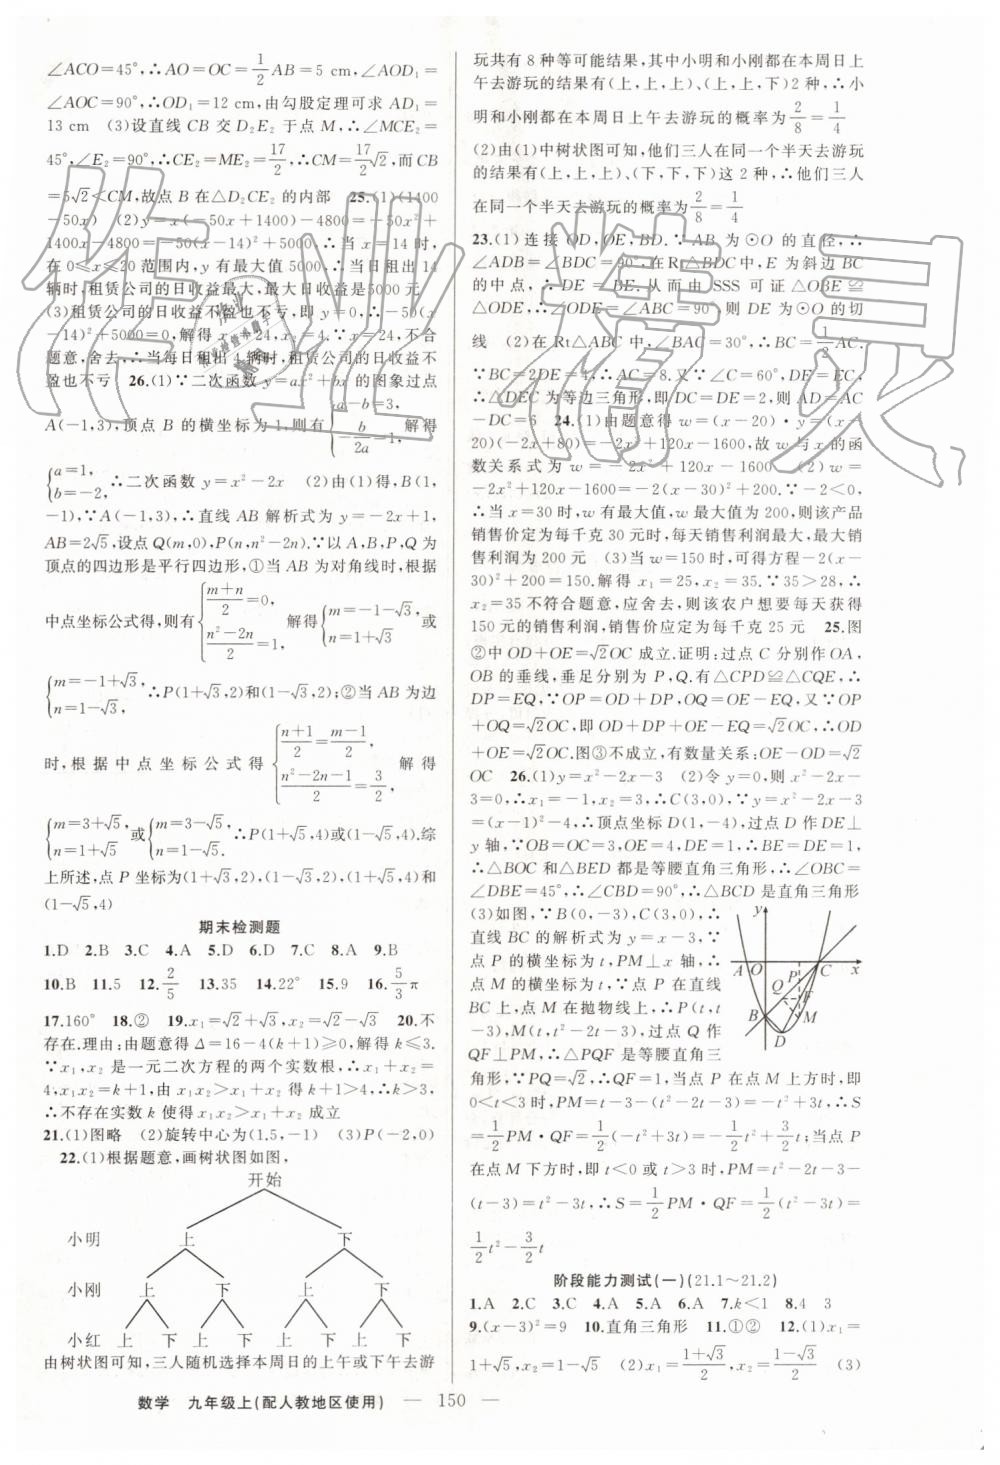 ∠ACO=45°,∴AO=OC=1/2AB=5 cm,∴∠AOD₁=
∠AOC=90°,∴OD₁=12 cm,由勾股定理可求 AD₁=
13 cm (3)设直线 CB 交 D₂E₂ 于点 M,∴∠MCE₂=
45°,∠E₂=90°,∴CE₂=ME₂=17/2,∴CM=17/2√2,而CB
=5√2<CM,故点 B 在△D₂CE₂ 的内部 25.(1)(1400
-50x) (2)y=x(-50x+1400)-4800=-50x²+
1400x-4800=-50(x-14)²+5000,∴当 x=14 时,
在 0≤x≤20 范围内,y 有最大值 5000,∴当日租出 14
辆时,租赁公司的日收益最大,最大日收益为5000 元
(3)租赁公司的日收益不盈也不亏,即:y=0,∴-50(x
-14)²+5000=0,解得 x₁=24,x₂=4,∵x=24,不合
题意,舍去,∴当每日租出 4 辆时,租赁公司的日收益不
盈也不亏 26.(1)∵二次函数 y=ax²+bx 的图象过点
A(-1,3),顶点 B 的横坐标为 1,则有{a-b=3, -b/2a=1, 解得
{a=1, b=-2, ∴二次函数 y=x²-2x (2)由(1)得,B(1,
-1),∵A(-1,3),∴直线 AB 解析式为 y=-2x+1,
AB=2√5,设点 Q(m,0),P(n,n²-2n).∵以 A,B,P,Q 为
顶点的四边形是平行四边形,①当 AB 为对角线时,根据
中点坐标公式得,则有{(m+n)/2=0, (n²-2n)/2=1, 解得{m=-1-√3, n=1+√3 或
{m=-1+√3, n=1-√3, ∴P(1+√3,2)和(1-√3,2);②当 AB 为边
时,根据中点坐标公式得{(n+1)/2=(m-1)/2, (n²-2n-1)/2=3/2, 解得
{m=3+√5, n=1+√5 或{m=3-√5, n=1-√5. ∴P(1+√5,4)或(1-√5,4).综
上所述,点 P 坐标为(1+√3,2),(1-√3,2),(1+√5,4)和
(1-√5,4)
期末检测题
1.D 2.B 3.C 4.A 5.D 6.D 7.C 8.A 9.B
10.B 11.5 12.2/5 13.35 14.22° 15.9 16.5/3π
17.160° 18.② 19.x₁=√2+√3,x₂=√2-√3 20.不
存在.理由:由题意得 Δ=16-4(k+1)≥0,解得 k≤3.
∵x₁,x₂ 是一元二次方程的两个实数根,∴x₁+x₂=
4,x₁x₂=k+1,由 x₁x₂>x₁+x₂ 得 k+1>4,∴k>3,
∴不存在实数 k 使得 x₁x₂>x₁+x₂ 成立
21.(1)图略 (2)旋转中心为(1.5,-1) (3)P(-2,0)
22.(1)根据题意,画树状图如图,
开始
小明 上 下
小刚 上 下 上 下
小红 上 下 上 下 上 下 上 下
由树状图可知,三人随机选择本周日的上午或下午去游
玩共有 8 种等可能结果,其中小明和小刚都在本周日上
午去游玩的结果有(上,上,上),(上,上,下)2 种,∴小
明和小刚都在本周日上午去游玩的概率为2/8=1/4
(2)由(1)中树状图可知,他们三人在同一个半天去游玩
的结果有(上,上,上),(下,下,下)这 2 种,∴他们三人
在同一个半天去游玩的概率为2/8=1/4
23.(1)连接 OD,OE,BD.∵AB 为⊙O 的直径,∴
∠ADB=∠BDC=90°,在 Rt△BDC 中,E 为斜边 BC
的中点,∴DE=BE.从而由 SSS 可证△OBE≌
△ODE,∴∠ODE=∠ABC=90°,则 DE 为⊙O 的切
线 (2)在 Rt△ABC 中,∠BAC=30°,∴BC=1/2AC.
∵BC=2DE=4,∴AC=8.又∵∠C=60°,DE=EC,
∴△DEC 为等边三角形,即 DC=DE=2,则 AD=AC
-DC=6 24.(1)由题意得 w=(x-20)·y=(x-
20)(-2x+80)=-2x²+120x-1600,故 w 与 x 的函
数关系式为 w=-2x²+120x-1600 (2)w=
-2x²+120x-1600=-2(x-30)²+200.∵-2<0,
∴当 x=30 时,w 有最大值,w 最大值为 200.则该产品
销售价定为每千克 30 元时,每天销售利润最大,最大销
售利润为 200 元 (3)当 w=150 时,可得方程-2(x-
30)²+200=150.解得 x₁=25,x₂=35.∵35>28,∴
x₂=35 不符合题意,应舍去,则该农户想要每天获得
150 元的销售利润,销售价应定为每千克 25 元 25.图
②中 OD+OE=√2OC 成立.证明:过点 C 分别作 OA,
OB 的垂线,垂足分别为 P,Q.有△CPD≌△CQE,∴
DP=EQ,∵OP=OD+DP,OQ=OE-EQ,又∵OP
+OQ=√2OC,即 OD+DP+OE-EQ=√2OC,∴OD
+OE=√2OC.图③不成立,有数量关系:OE-OD=√2
OC 26.(1)y=x²-2x-3 (2)令 y=0,则 x²-2x-
3=0,∴x₁=-1,x₂=3,∴C(3,0),∵y=x²-2x-3
=(x-1)²-4,∴顶点坐标 D(1,-4),过点 D 作 DE⊥
y 轴,∵OB=OC=3,OE=4,DE=1,∴BE=DE=1,
∴△BOC 和△BED 都是等腰直角三角形,∴∠OBC=
∠DBE=45°,∴∠CBD=90°,∴△BCD 是直角三角形
(3)如图,∵B(0,-3),C(3,0),∴
直线 BC 的解析式为 y=x-3,∵
点 P 的横坐标为 t,PM⊥x 轴,∴
点 M 的横坐标为 t,∵点 P 在直线
BC 上,点 M 在抛物线上,∴P(t,t
-3),M(t,t²-2t-3),过点 Q 作
QF⊥PM,∴△PQF 是等腰直角三
角形,∵PQ=√2,∴QF=1,当点 P 在点 M 上方时,即
0<t<3 时,PM=t-3-(t²-2t-3)=-t²+3t,∴S=
1/2PM·QF=1/2(-t²+3t)=-1/2t²+3/2t;当点 P
在点 M 下方时,即 t<0 或 t>3 时,PM=t²-2t-3-
(t-3)=t²-3t,∴S=1/2PM·QF=1/2(t²-3t)=
1/2t²-3/2t
y A O P C x Q F B M D
阶段能力测试(一)(21.1~21.2)
1.A 2.C 3.C 4.A 5.A 6.A 7.k<1 8.4 3
9.(x-3)²=9 10.直角三角形 11.①② 12.(1)x₁=
1+√5,x₂=1-√5 (2)x₁=(1+√3)/2,x₂=(1-√3)/2 (3)
数学 九年级上(配人教地区使用) — 150 —
作业精灵